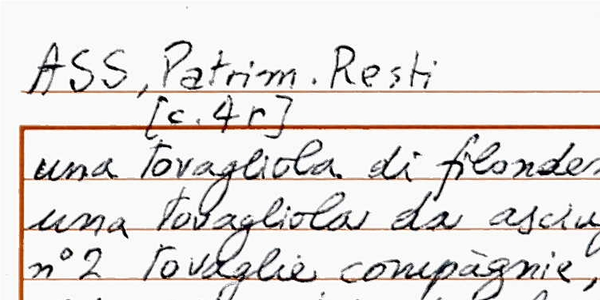 ASS, Patrim. Resti
[c. 4 r]
una tovagliola di filonde
una tovagliola da asciu
n° 2 tovaglie compàgnie,